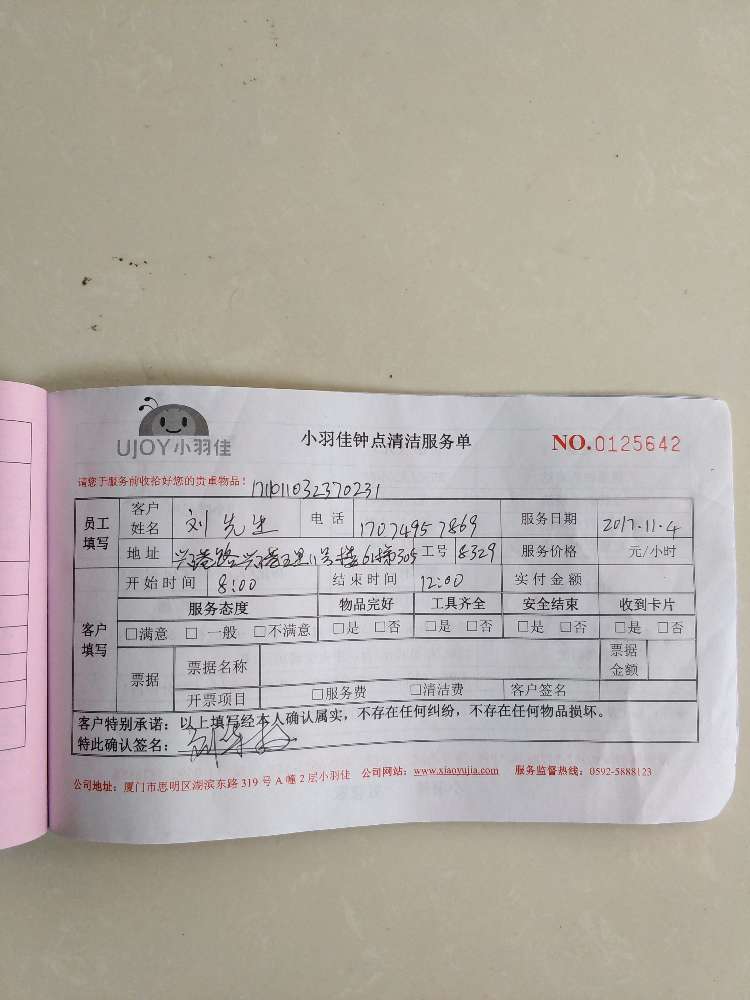 UJOY小羽佳
小羽佳钟点清洁服务单
NO.0125642
请您于服务前收拾好您的贵重物品！ 171101032370231
员工填写 客户姓名 刘先生 电话 17074957869 服务日期 2017.11.4
地址 兴港路兴港五里11号楼61梯305 工号 8329 服务价格 元/小时
开始时间 8:00 结束时间 12:00 实付金额
客户填写 服务态度 物品完好 工具齐全 安全结束 收到卡片
□满意 □一般 □不满意 □是 □否 □是 □否 □是 □否 □是 □否
票据 票据名称 票据金额
开票项目 □服务费 □清洁费 客户签名
客户特别承诺：以上填写经本人确认属实，不存在任何纠纷，不存在任何物品损坏。
特此确认签名：
公司地址：厦门市思明区湖滨东路319号A幢2层小羽佳 公司网站：www.xiaoyujia.com 服务监督热线：0592-5888123